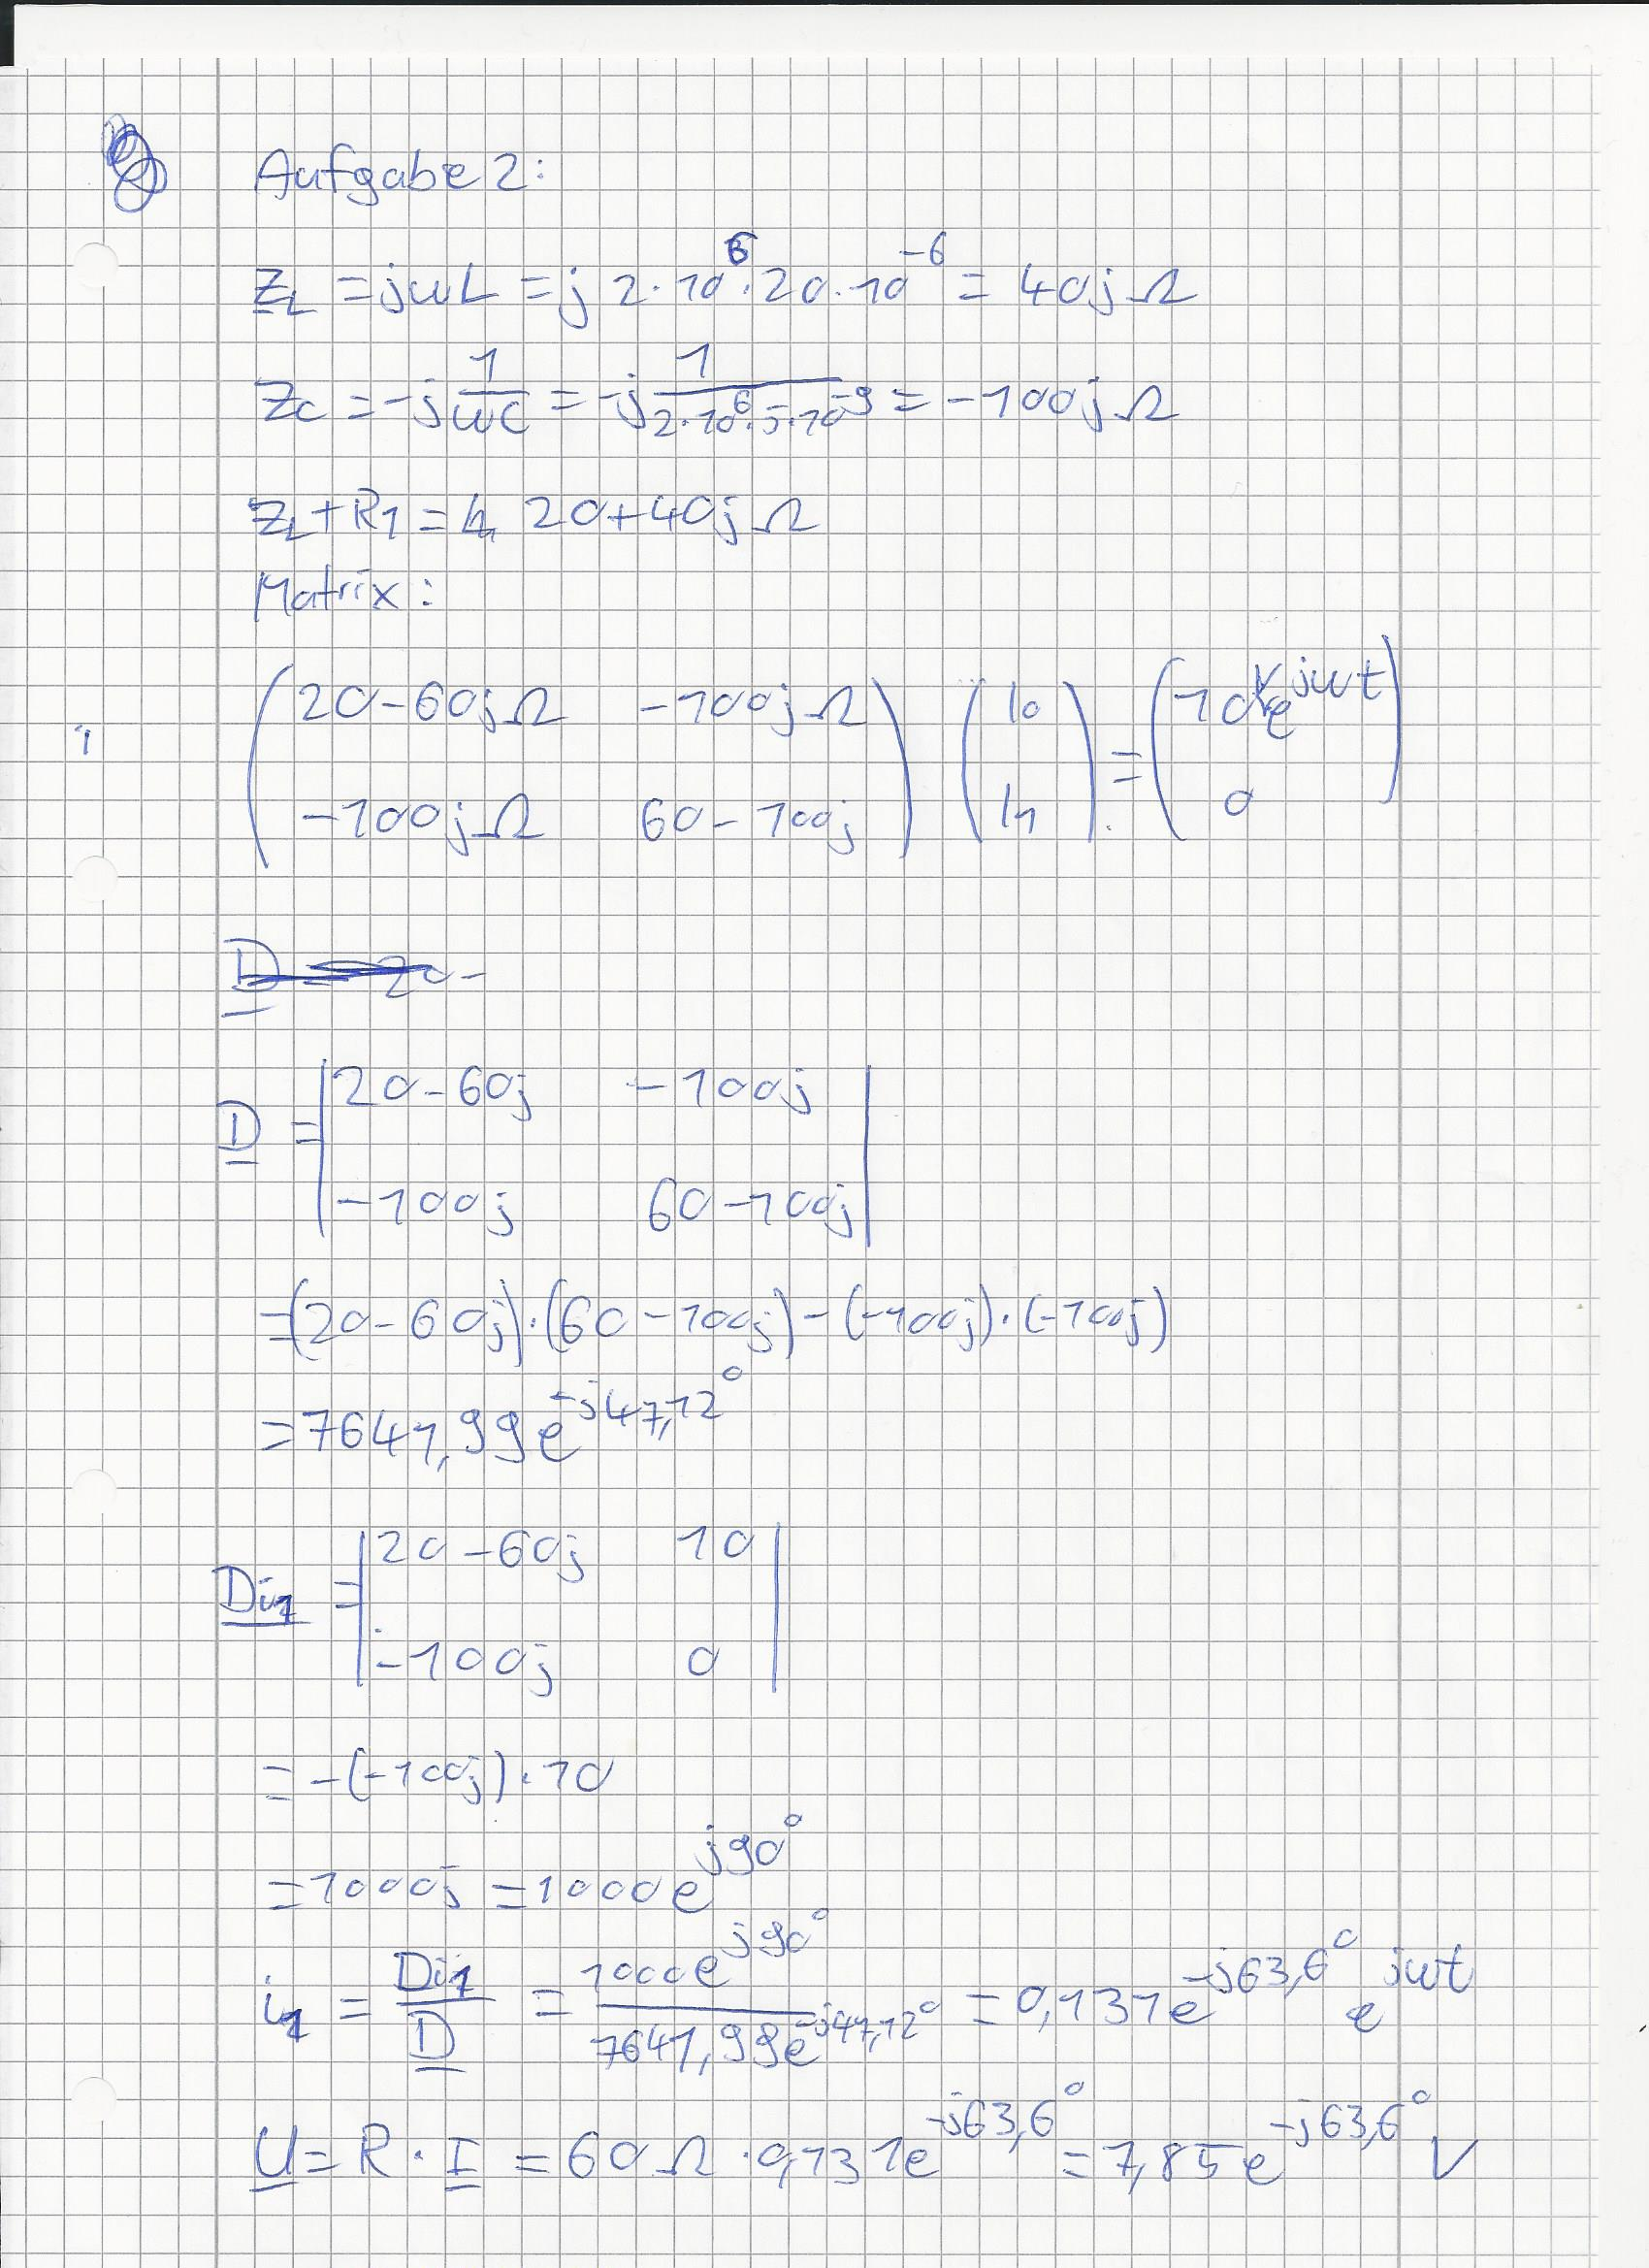 Aufgabe 2:
Z_L = jωL = j 2·10^6·20·10^-6 = 40j Ω
Z_C = -j 1/ωC = -j 1/2·10^6·5·10^-9 = -100j Ω
Z_L + R1 = 20+40j Ω
Matrix:
20-60jΩ -100jΩ I0 10V e^jωt
( ) ( ) = ( )
-100jΩ 60-100j I1 0
1
D = 20-
D = | 20-60j -100j |
| -100j 60-100j |
= (20-60j)·(60-100j)-(-100j)·(-100j)
= 7641,99e^-j47,12°
Di1 = | 20-60j 10 |
| -100j 0 |
= -(-100j)·10
= 1000j = 1000e^j90°
i1 = Di1/D = 1000e^j90°/7641,99e^-j47,12° = 0,131e^-j63,6° e^jωt
U = R·I = 60Ω·0,131e^-j63,6° = 7,85e^-j63,6° V